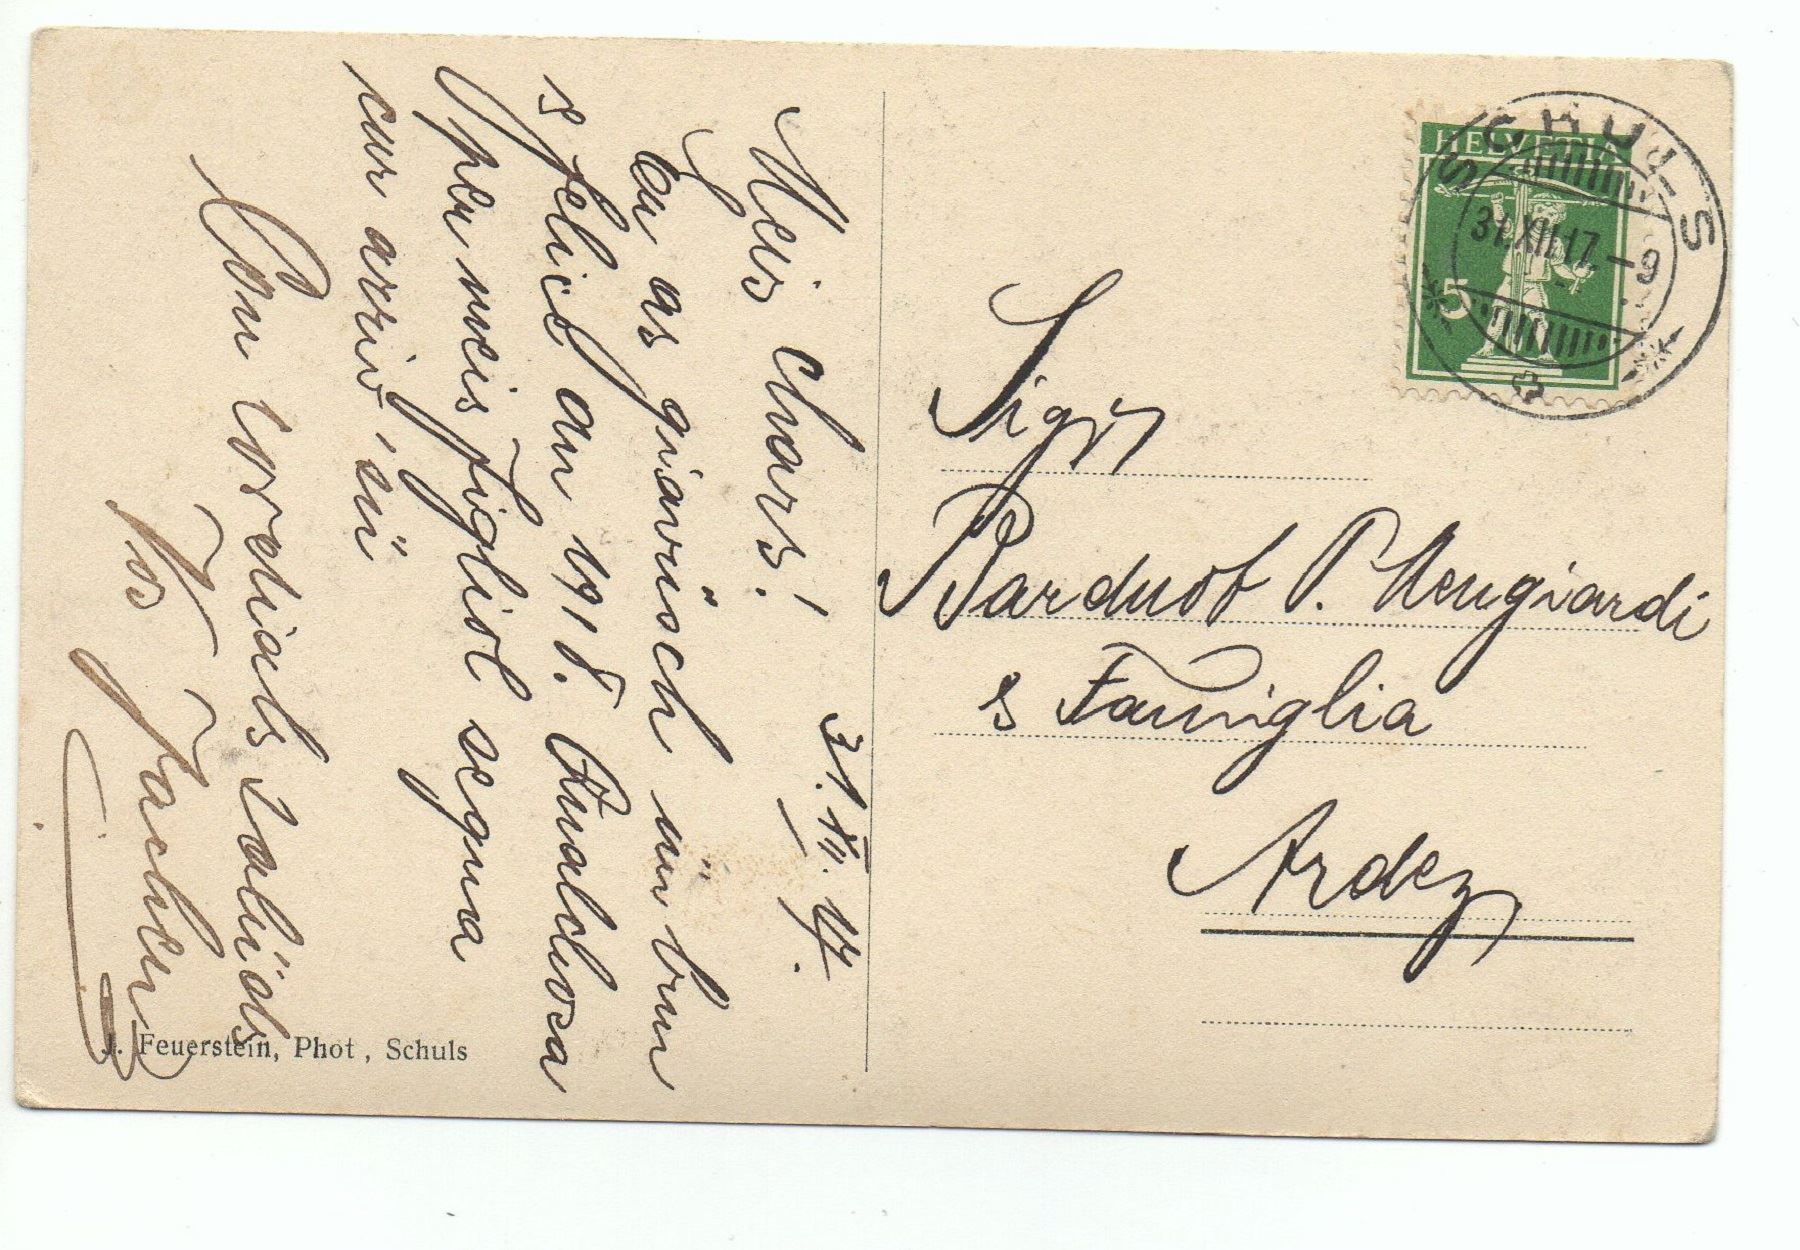 Meis chars!
31. XII. 17.
Eu as giavüsch ün bun
e felice an 1918. Qualchosa
per meis figliol segua
cur arriv' sü
Con cordials salüds
Vos Jachen
Sigr
Barduot P. Mengiardi
e Famiglia
Ardez
HELVETIA
5
SCHULS
31.XII.17.-9
J. Feuerstein, Phot, Schuls